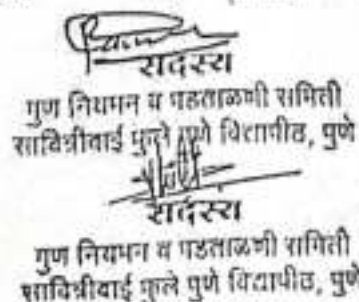 सदस्य
गुण नियमन व पडताळणी समिती
सावित्रीबाई फुले पुणे विद्यापीठ, पुणे
सदस्य
गुण नियमन व पडताळणी समिती
सावित्रीबाई फुले पुणे विद्यापीठ, पुणे